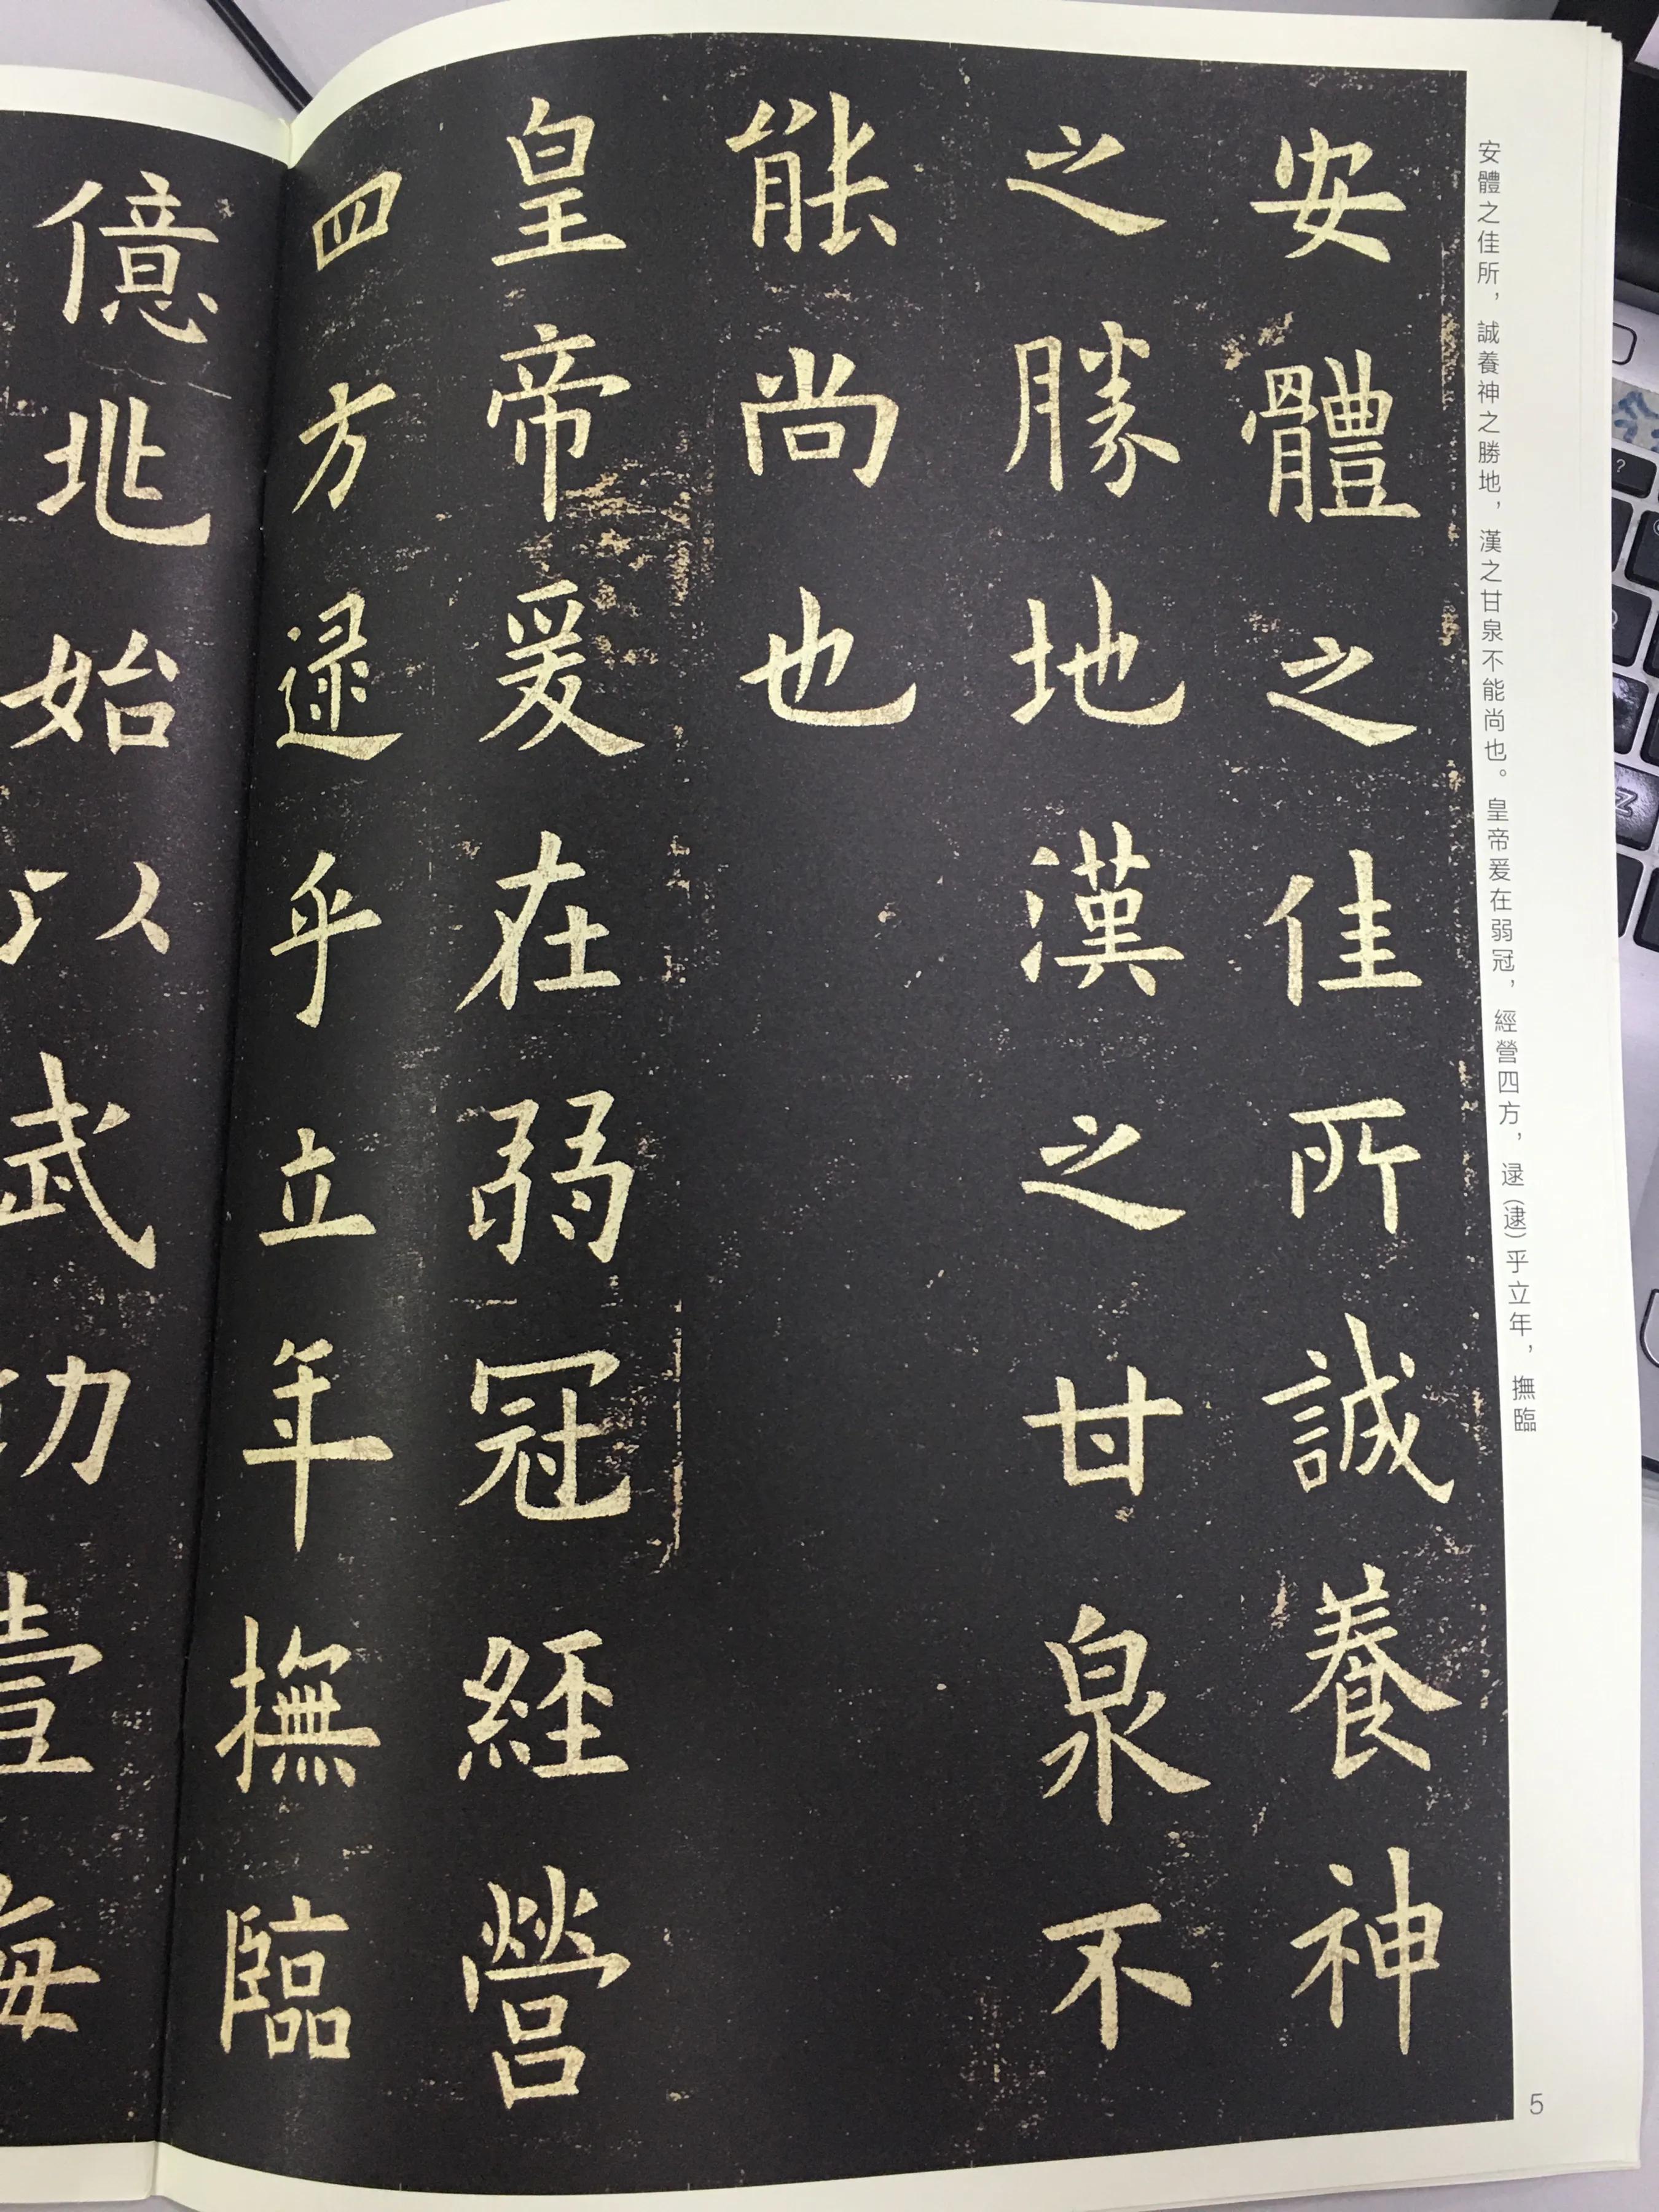 安體之佳所，誠養神之勝地，漢之甘泉不能尚也。皇帝爰在弱冠，經營四方，逯（逮）乎立年，撫臨
安體之佳所誠養神
之勝地漢之甘泉不
能尚也
皇帝爰在弱冠經營
四方逯乎立年撫臨
億兆始以武功壹海
5